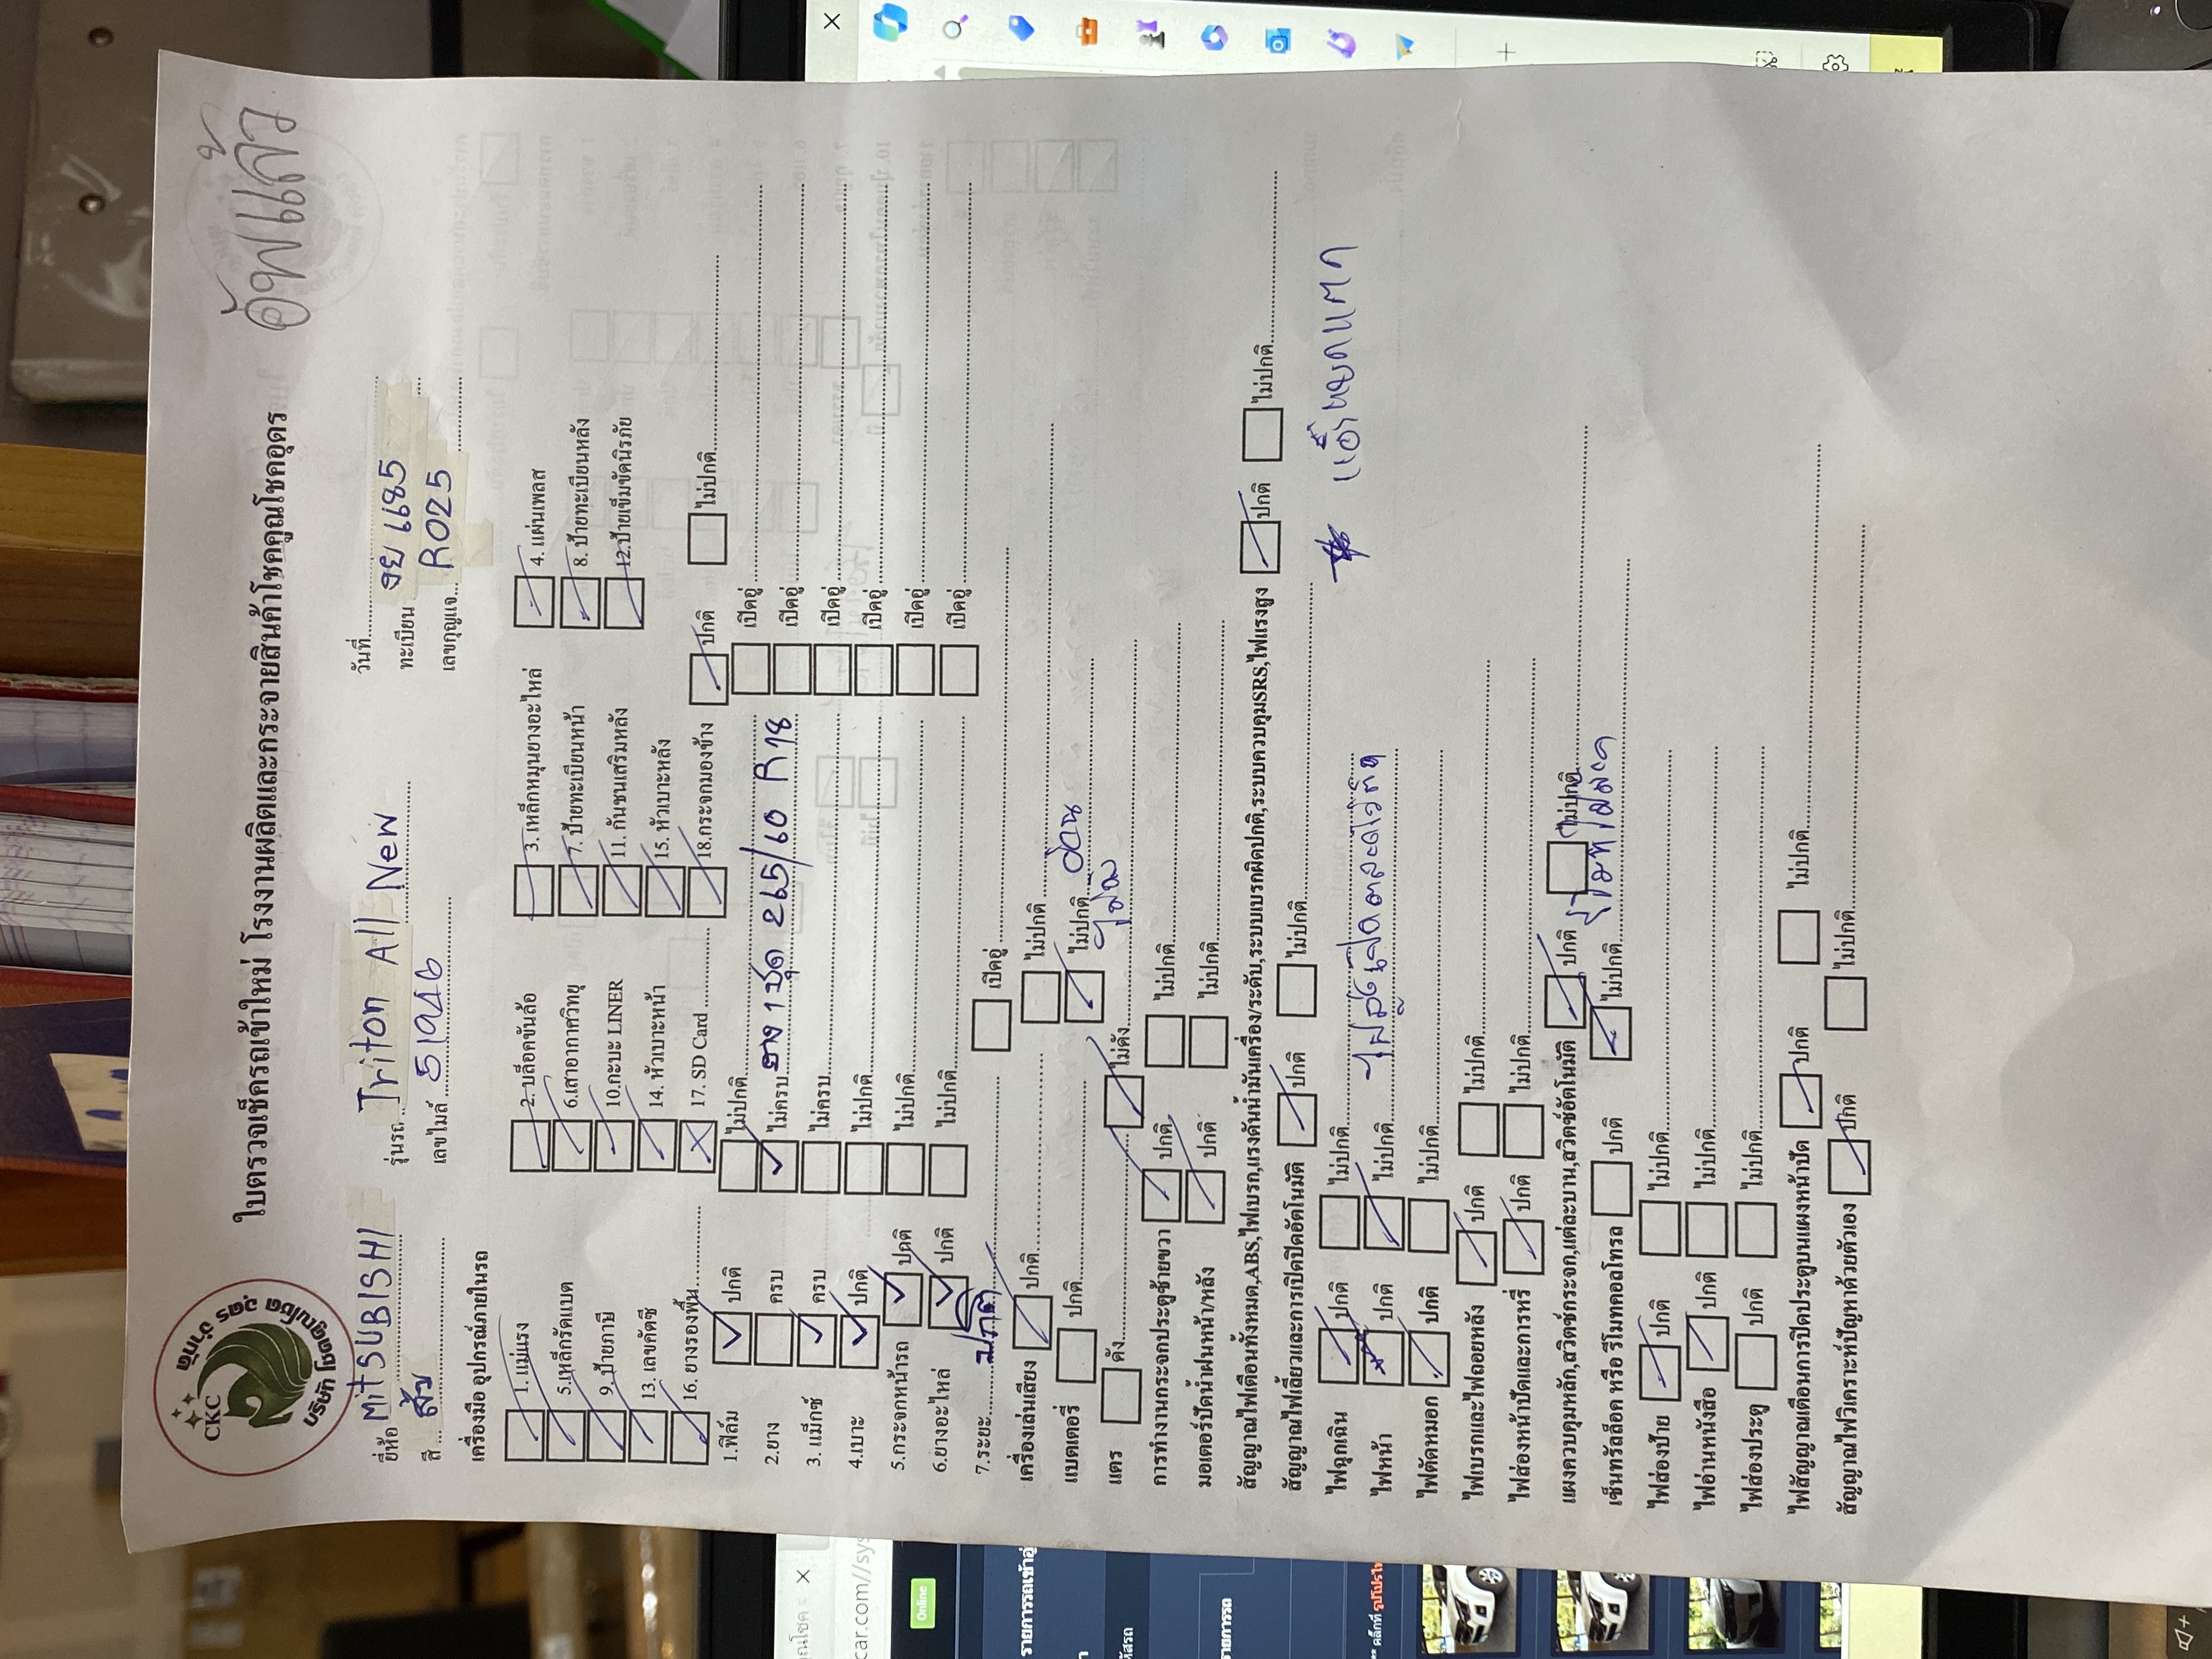 อัพแล้ว
บริษัท โชคคูณโชค อุดร จำกัด
CKC
ใบตรวจเช็ครถเข้าใหม่ โรงงานผลิตและกระจายสินค้าโชคคูณโชคอุดร
วันที่
ยี่ห้อ MITSUBISHI รุ่นรถ Triton All New ทะเบียน
สี ส้ม เลขไมล์ เลขกุญแจ R025
เครื่องมือ อุปกรณ์ภายในรถ
1. แม่แรง 2. บล็อคขันล้อ 3. เหล็กหมุนยางอะไหล่ 4. แผ่นเพลส
5.เหล็กรัดแบต 6.เสาอากาศวิทยุ 7. ป้ายทะเบียนหน้า 8. ป้ายทะเบียนหลัง
9. ป้ายภาษี 10.กะบะ LINER 11. กันชนเสริมหลัง 12.ป้ายเข็มขัดนิรภัย
13. เลขคัตซี 14. หัวเบาะหน้า 15. หัวเบาะหลัง
16. ยางรองพื้น 17. SD Card 18.กระจกมองข้าง ปกติ ไม่ปกติ
1.ฟิล์ม ปกติ ไม่ปกติ เบิคอู่
2.ยาง ครบ ไม่ครบ ยาง 1 ชุด 265/60 R 18 เบิคอู่
3. แม็กซ์ ครบ ไม่ครบ เบิคอู่
4.เบาะ ปกติ ไม่ปกติ เบิคอู่
5.กระจกหน้ารถ ปกติ ไม่ปกติ เบิคอู่
6.ยางอะไหล่ ปกติ ไม่ปกติ เบิคอู่
7.ระยะ ปกติ เบิคอู่
เครื่องเล่นเสียง ปกติ ไม่ปกติ
แบตเตอรี่ ปกติ ไม่ปกติ อ่อน
แตร ดัง ไม่ดัง
การทำงานกระจกประตูซ้ายขวา ปกติ ไม่ปกติ
มอเตอร์ปัดน้ำฝนหน้า/หลัง ปกติ ไม่ปกติ
สัญญาณไฟเตือนทั้งหมด,ABS,ไฟเบรก,แรงดันน้ำมันเครื่อง/ระดับ,ระบบเบรกผิดปกติ,ระบบควบคุมSRS,ไฟแรงสูง ปกติ ไม่ปกติ
สัญญาณไฟเลี้ยวและการเปิดปิดอัตโนมัติ ปกติ ไม่ปกติ
ไฟฉุกเฉิน ปกติ ไม่ปกติ
ไฟหน้า ปกติ ไม่ปกติ
ไฟตัดหมอก ปกติ ไม่ปกติ
ไฟเบรกและไฟถอยหลัง ปกติ ไม่ปกติ
ไฟส่องหน้าปัดและการหรี่ ปกติ ไม่ปกติ
แผงควบคุมหลัก,สวิตช์กระจก,แต่ละบาน,สวิตช์อัตโนมัติ ปกติ ไม่ปกติ
เซ็นทรัลล็อค หรือ รีโมทคอลโทรล ปกติ ไม่ปกติ
ไฟส่องป้าย ปกติ ไม่ปกติ
ไฟอ่านหนังสือ ปกติ ไม่ปกติ
ไฟส่องประตู ปกติ ไม่ปกติ
ไฟสัญญาณเตือนการปิดประตูบนแผงหน้าปัด ปกติ ไม่ปกติ
สัญญาณไฟวิเคราะห์ปัญหาด้วยตัวเอง ปกติ ไม่ปกติ
Online
รายการรถ